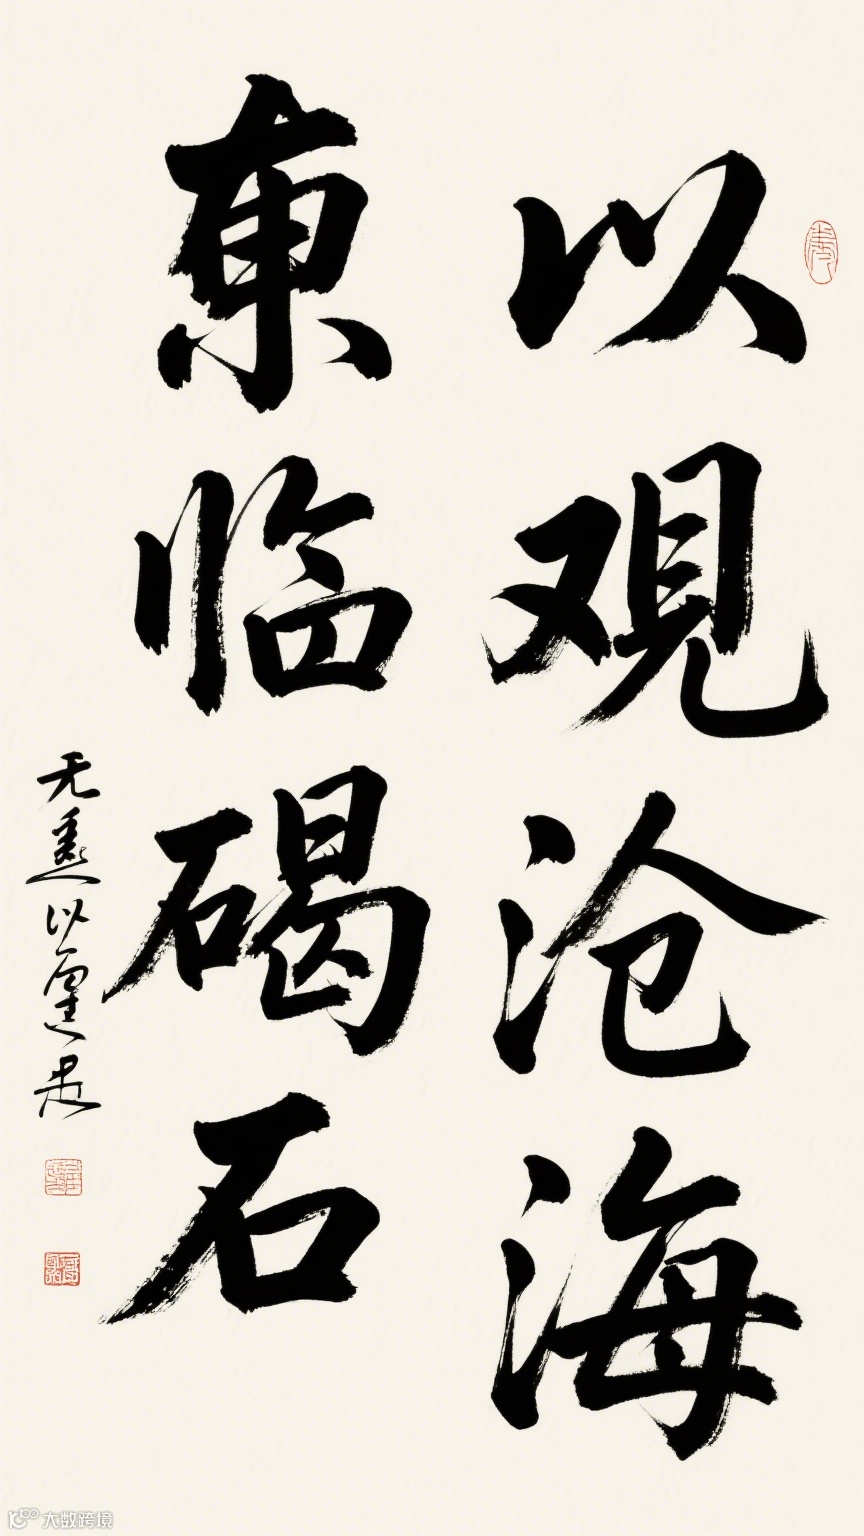 以观沧海
東临碣石
大数跨境